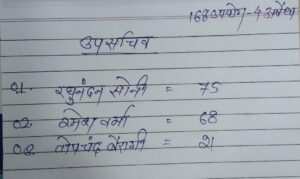 168 उपयोग - 4 अवैध
उपसचिव
01. रघुनंदन सोनी = 75
02. रमेश वर्मा = 68
03. गोपचंद बैरागी = 21